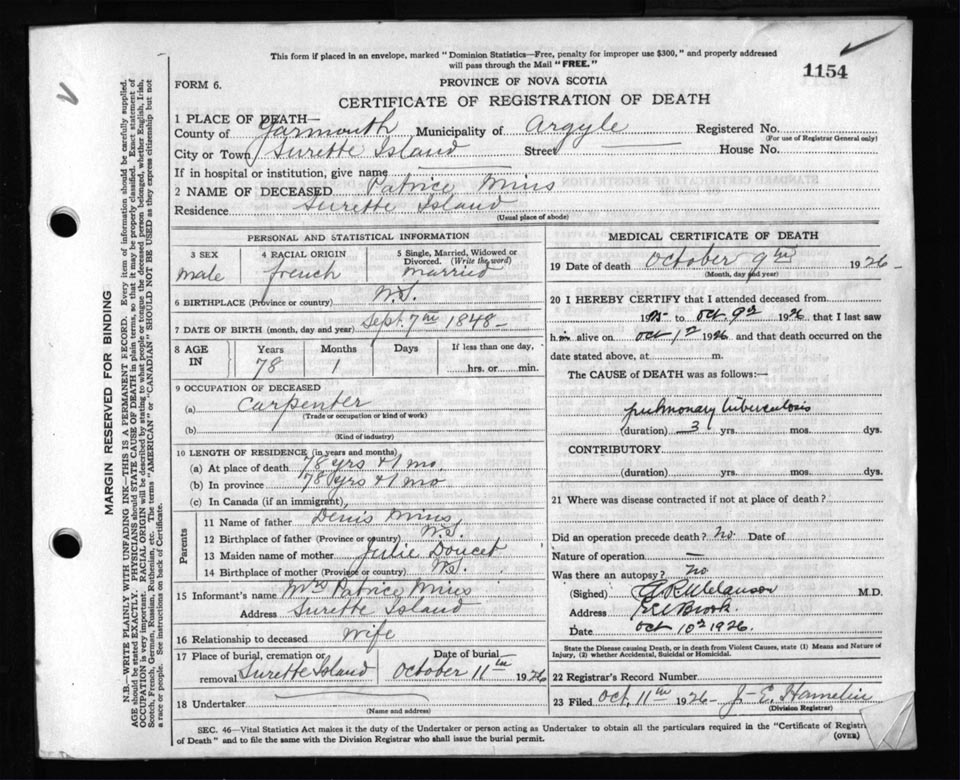 This form if placed in an envelope, marked "Dominion Statistics—Free, penalty for improper use $300," and properly addressed
will pass through the Mail "FREE."
1154
FORM 6.
PROVINCE OF NOVA SCOTIA
CERTIFICATE OF REGISTRATION OF DEATH
1 PLACE OF DEATH—
County of Yarmouth Municipality of Argyle Registered No.
(For use of Registrar General only)
City or Town Surette Island Street House No.
If in hospital or institution, give name
2 NAME OF DECEASED Patrice Mius
Residence Surette Island
(Usual place of abode)
PERSONAL AND STATISTICAL INFORMATION
3 SEX
male
4 RACIAL ORIGIN
french
5 Single, Married, Widowed or
Divorced. (Write the word)
married
6 BIRTHPLACE (Province or country) N.S.
7 DATE OF BIRTH (month, day and year) Sept. 7th 1848-
8 AGE
IN
Years
78
Months
1
Days
If less than one day,
hrs. or min.
9 OCCUPATION OF DECEASED
(a) Carpenter
(Trade or occupation or kind of work)
(b)
(Kind of industry)
10 LENGTH OF RESIDENCE (in years and months)
(a) At place of death 78 yrs + 1 mo
(b) In province 78 yrs + 1 mo
(c) In Canada (if an immigrant)
Parents
11 Name of father Denis Mius
12 Birthplace of father (Province or country) N.S.
13 Maiden name of mother Julie Doucet
14 Birthplace of mother (Province or country) N.S.
15 Informant's name Mrs Patrice Mius
Address Surette Island
16 Relationship to deceased Wife
17 Place of burial, cremation or
removal Surette Island
Date of burial
October 11th 1926
18 Undertaker
(Name and address)
MEDICAL CERTIFICATE OF DEATH
19 Date of death October 9th 1926-
(Month, day and year)
20 I HEREBY CERTIFY that I attended deceased from
19 to Oct. 9th 1926 that I last saw
him alive on Oct 1st 1926 and that death occurred on the
date stated above, at m.
The CAUSE of DEATH was as follows:—
pulmonary tuberculosis
(duration) 3 yrs. mos. dys.
CONTRIBUTORY
(duration) yrs. mos. dys.
21 Where was disease contracted if not at place of death?
Did an operation precede death? no. Date of
Nature of operation —
Was there an autopsy? no
(Signed) Melanson M.D.
Address Eel Brook
Date Oct 10th 1926.
State the Disease causing Death, or in death from Violent Causes, state (1) Means and Nature of
Injury, (2) whether Accidental, Suicidal or Homicidal.
22 Registrar's Record Number
23 Filed Oct, 11th 1926- J. E. Hamelin
(Division Registrar)
SEC. 46—Vital Statistics Act makes it the duty of the Undertaker or person acting as Undertaker to obtain all the particulars required in the "Certificate of Registr
of Death" and to file the same with the Division Registrar who shall issue the burial permit.
(OVER)
MARGIN RESERVED FOR BINDING
N.B.—WRITE PLAINLY WITH UNFADING INK—THIS IS A PERMANENT RECORD. Every item of information should be carefully supplied.
AGE should be stated EXACTLY. PHYSICIANS should STATE CAUSE OF DEATH in plain terms, so that it may be properly classified. Exact statement of
OCCUPATION is very important. RACIAL ORIGIN will be described by stating to what people or tongue the deceased person belonged, whether English, Irish,
Scotch, French, German, Russian, Ruthenian, etc. The terms "AMERICAN" or "CANADIAN" SHOULD NOT BE USED as they express citizenship but not
a race or people. See instructions on back of Certificate.